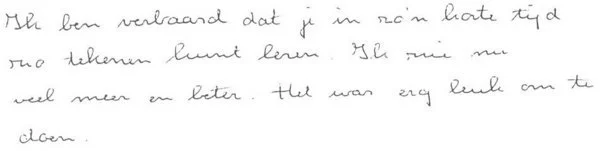 Ik ben verbaasd dat je in zo'n korte tijd
zo tekenen kunt leren. Ik zie nu
veel meer en beter. Het was erg leuk om te
doen.